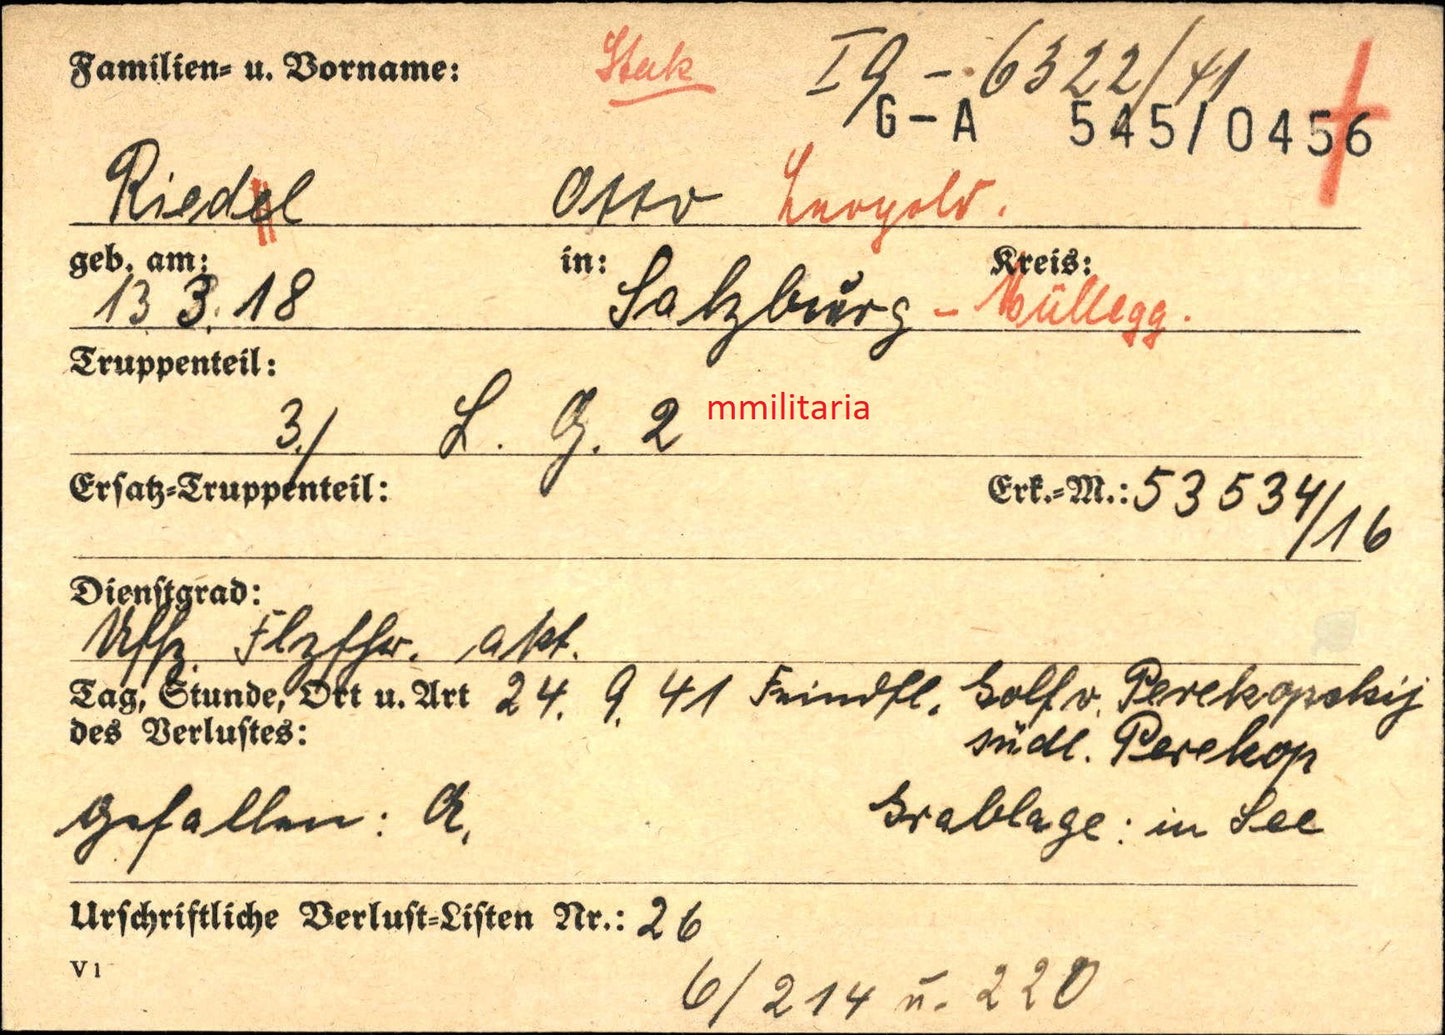 Familien- u. Vorname:
Stak
I 9 - 6322/41
G-A 545/0456
Riedel Otto Leopold.
geb. am: in: Kreis:
13 3. 18 Salzburg - Müllegg.
Truppenteil:
3./ L. G. 2
mmilitaria
Ersatz-Truppenteil: Erk.-M.: 53534/16
Dienstgrad:
Uffz. Flzgfhr. akt.
Tag, Stunde, Ort u. Art 24. 9. 41 Feindfl. Golf v. Perekopskij
des Verlustes: südl. Perekop
gefallen: A. Grablage: in See
Urschriftliche Verlust-Listen Nr.: 26
V 1
6/214 u. 220